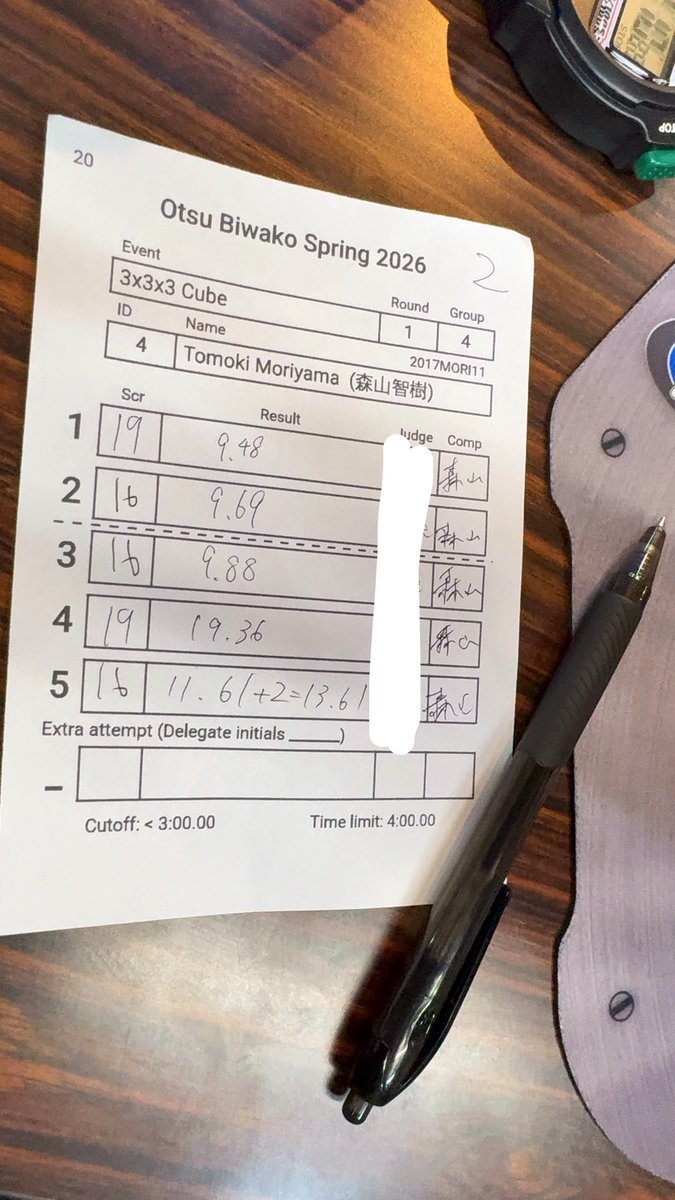 20
Otsu Biwako Spring 2026
2
Event
Round Group
3x3x3 Cube 1 4
ID Name 2017MORI11
4 Tomoki Moriyama (森山智樹)
Scr Result Judge Comp
1 19 9.48 森山
2 16 9.69 森山
3 16 9.88 森山
4 19 19.36 森山
5 16 11.61+2=13.61 森山
Extra attempt (Delegate initials _____)
–
Cutoff: < 3:00.00 Time limit: 4:00.00